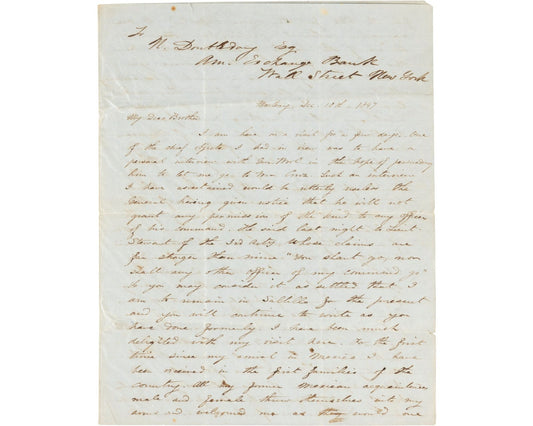 To
N. Doubleday Esq
Am. Exchange Bank
Wall Street New York
Dec. 10th, 1847
My Dear Brother
I am here on a visit for a few days. One
of the chief objects I had in view was to have a
personal interview with Gen Wool in the hope of persuading
him to let me go to Vera Cruz. Such an interview
I have ascertained would be utterly useless the
General having given notice that he will not
grant any permission of the kind to any officer
of his command. He said last night to Lieut.
Stewart of the 3rd Arty, whose claims are
far stronger than mine "You shant go, nor
shall any other officer of my command go"
So you may consider it as settled that I
am to remain in Saltillo for the present
and you will continue to write as you
have done formerly. I have been much
delighted with my visit here. For the first
time since my arrival in Mexico I have
been received in the first families of the
country. All my former Mexican acquaintances
male and female threw themselves into my
arms and welcomed me as they would one